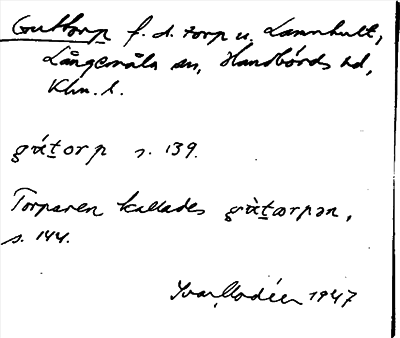 Guttorp f. d. torp u. Lannhult,
Långemåla sn, Handbörds hd,
Klm. l.
gátorp s. 139.
Torparen kallades gàtorpən,
s. 144.
Ivar Modéer 1947